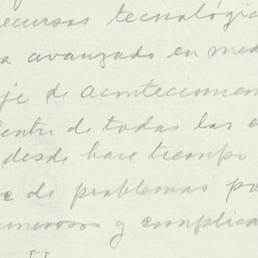 recursos tecnológic
a avanzado en med
je de acontecimien
dentro de todas las e
desde hace tiempo
e de problemas pa
numerosos y complica